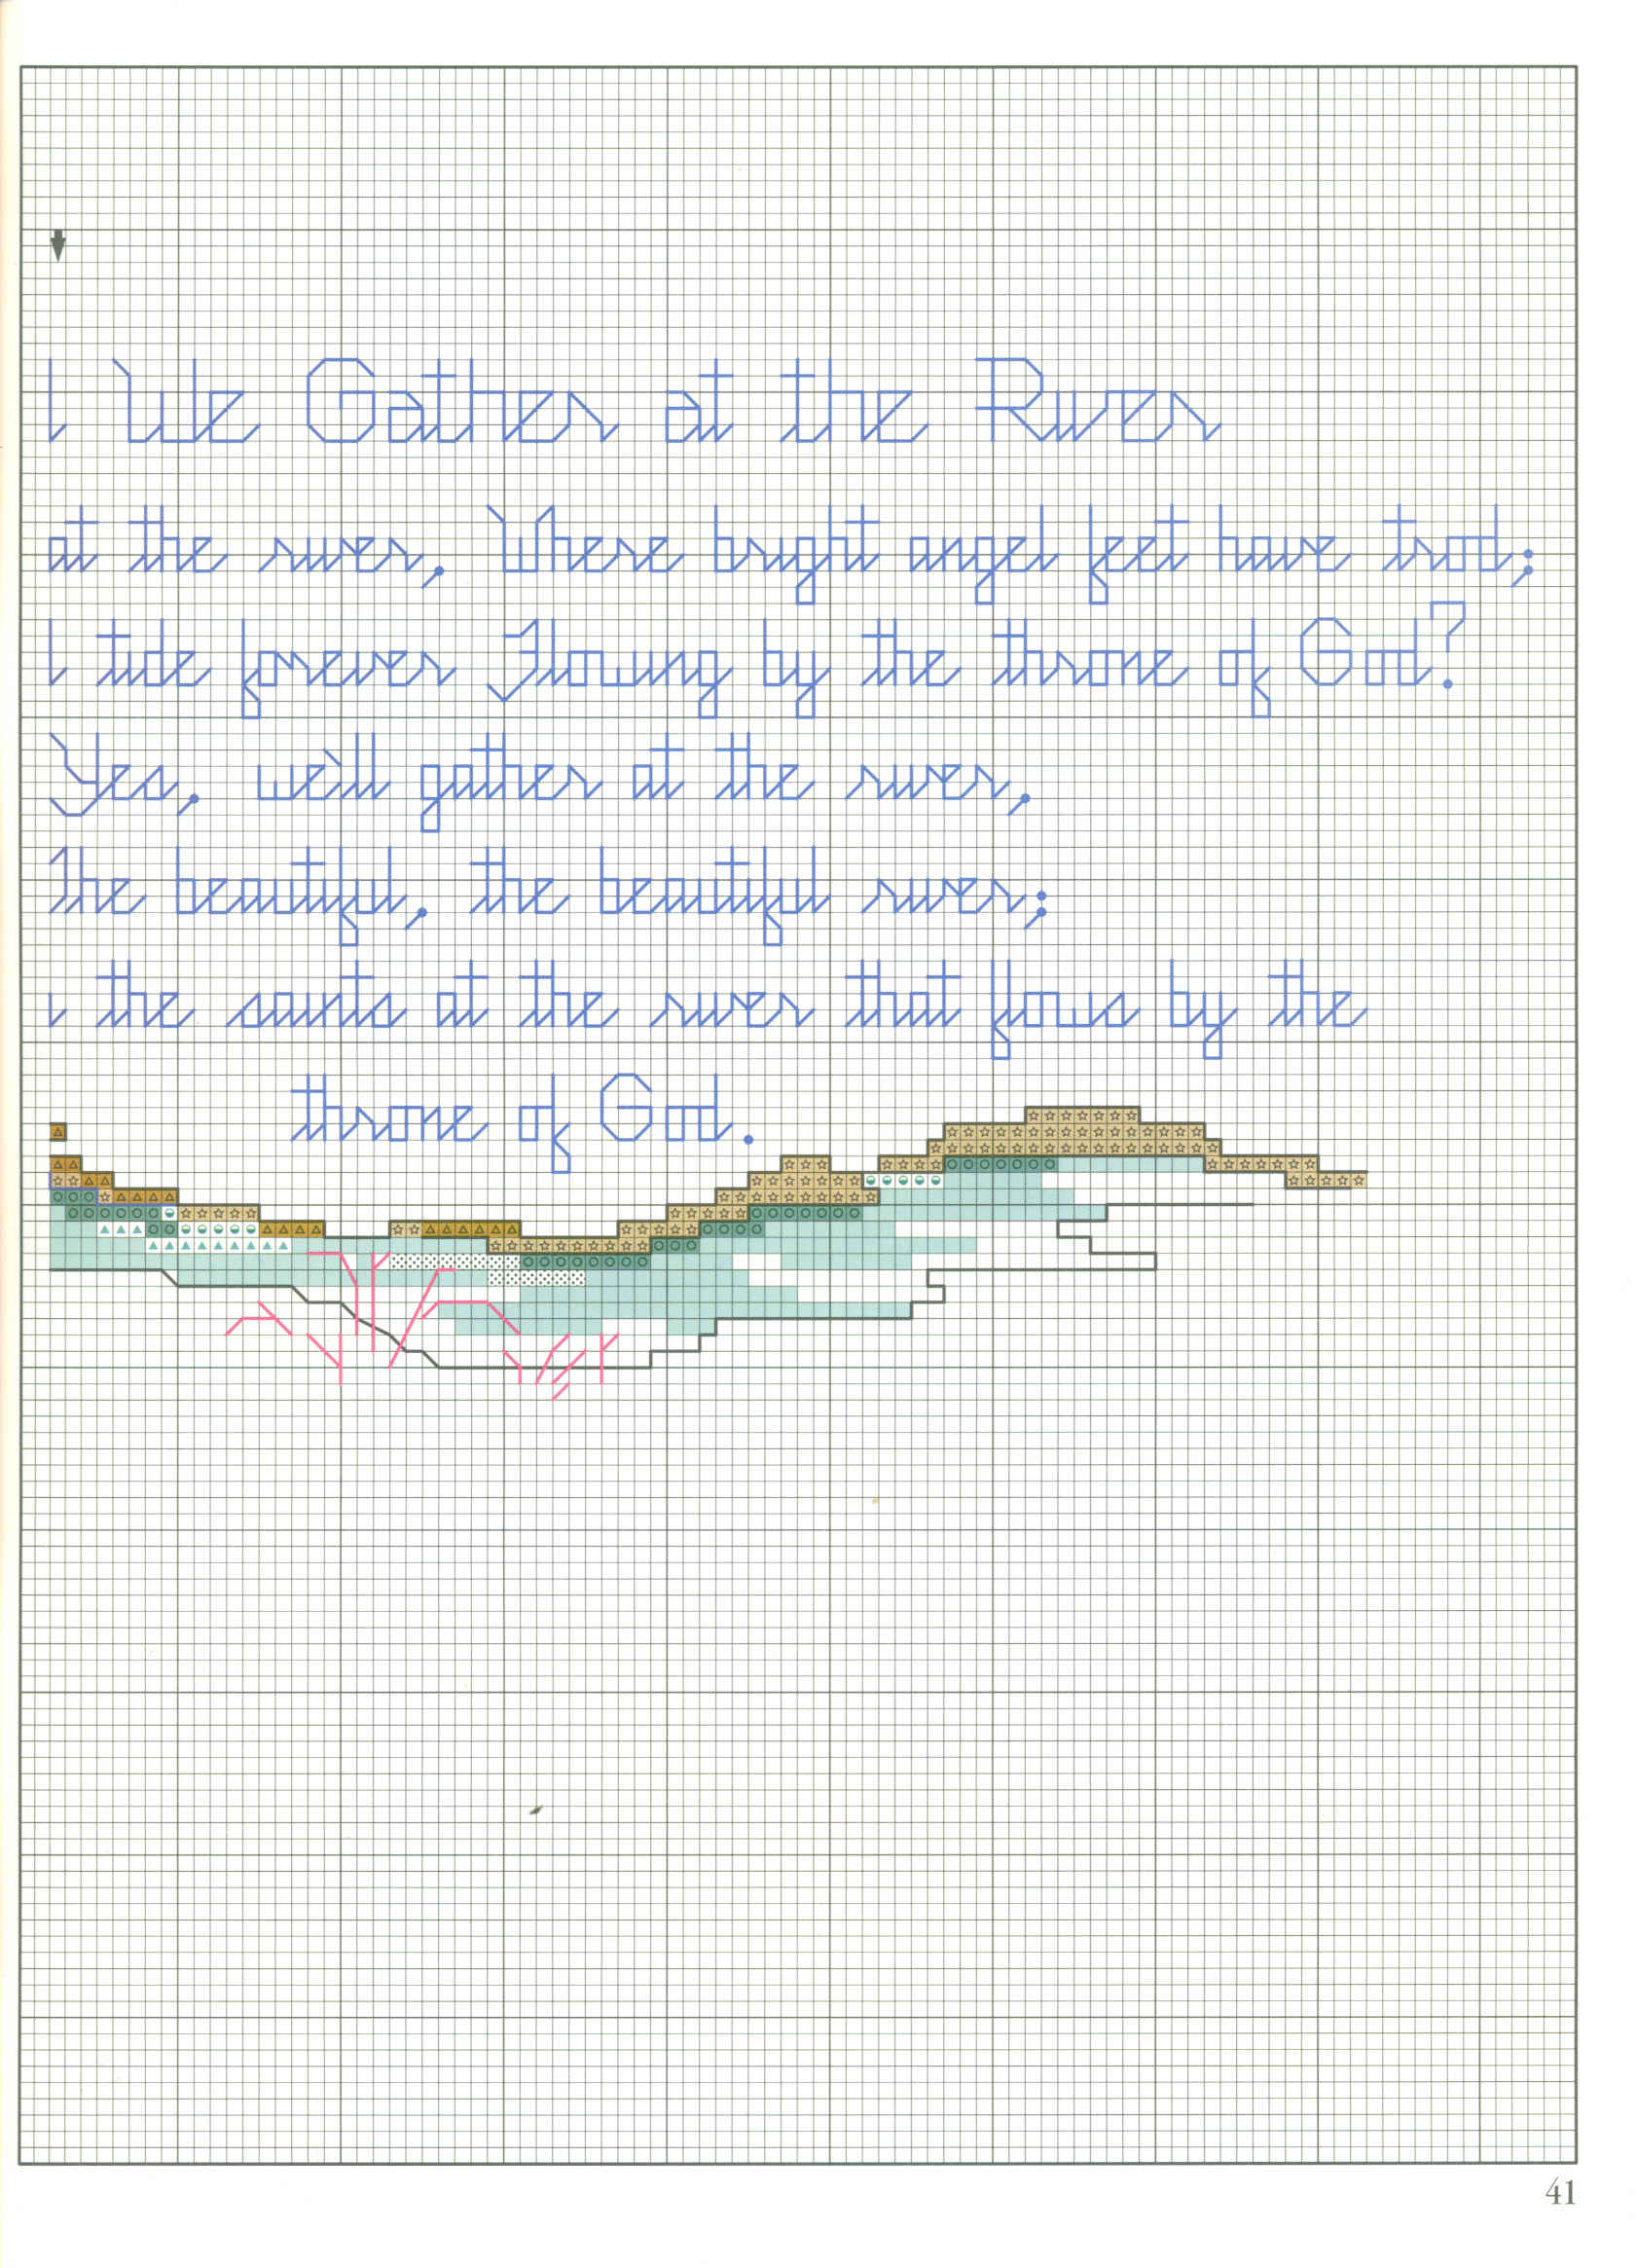 l We Gather at the River
at the river, Where bright angel feet have trod;
l tide forever Flowing by the throne of God?
Yes, we'll gather at the river,
The beautiful, the beautiful river;
l the saints at the river that flows by the
throne of God.
41